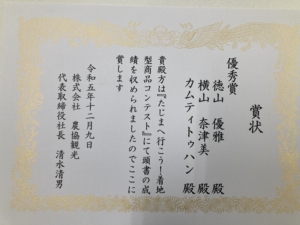 賞状
優秀賞
徳山 優雅 殿
横山 奈津美 殿
カムティトゥハン 殿
貴殿方は『たじまへ行こう！着地
型商品コンテスト』にて頭書の成
績を収められましたのでここに
賞します
令和五年十二月九日
株式会社 農協観光
代表取締役社長 清水清男